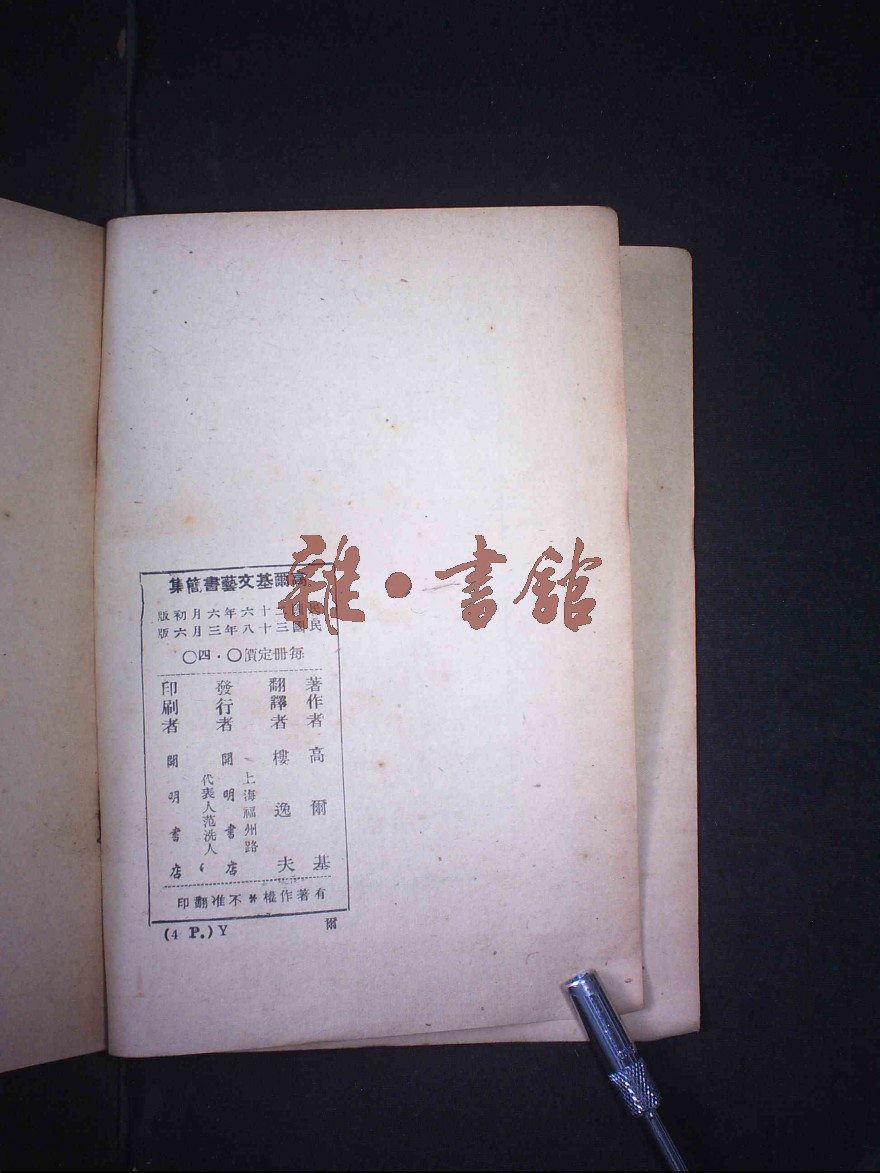 雜・書館
高爾基文藝書簡集
民國二十六年六月初版
民國三十八年三月六版
每冊定價〇・四〇
著作者 高爾基
翻譯者 樓逸夫
上海福州路
發行者 開明書店
代表人范洗人
印刷者 開明書店
有著作權*不准翻印
(4 P.) Y 爾